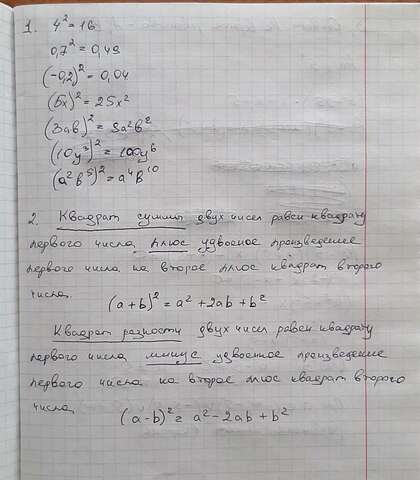 1. 4² = 16
0,7² = 0,49
(-0,2)² = 0,04
(5x)² = 25x²
(3ab)² = 9a²b²
(10y³)² = 100y⁶
(a²b⁵)² = a⁴b¹⁰
2. Квадрат суммы двух чисел равен квадрату
первого числа плюс удвоеное произведение
первого числа на второе плюс квадрат второго
числа.
(a+b)² = a² + 2ab + b²
Квадрат разности двух чисел равен квадрату
первого числа минус удвоенное произведение
первого числа на второе плюс квадрат второго
числа.
(a-b)² = a² - 2ab + b²